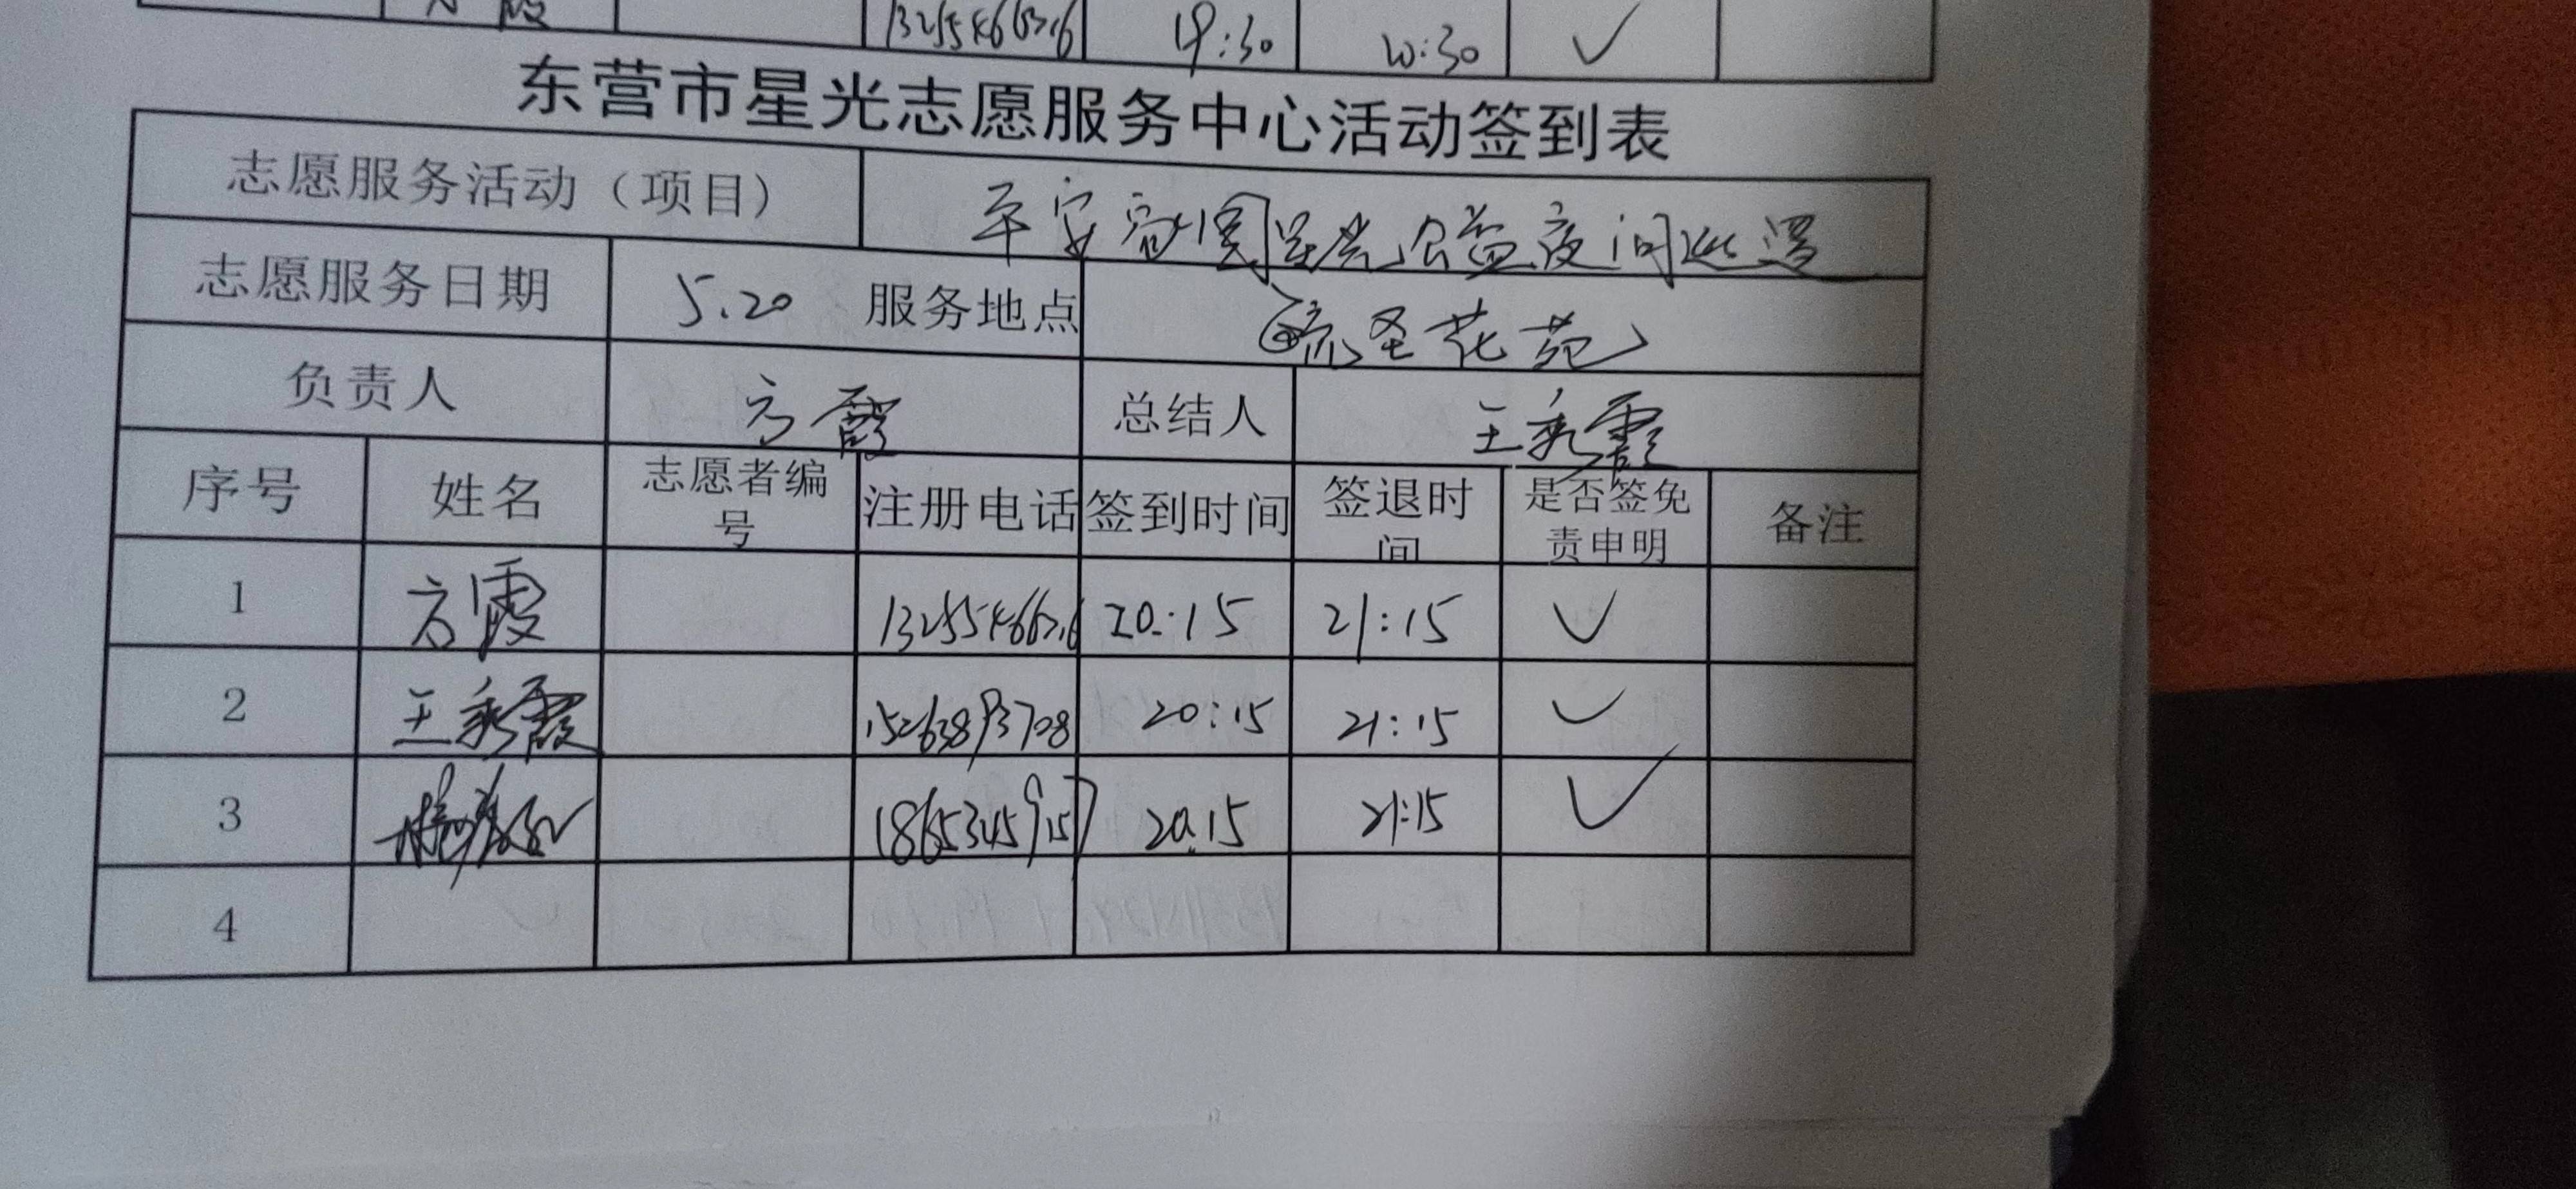 方霞 19:30 20:30 ✓
东营市星光志愿服务中心活动签到表
志愿服务活动（项目） 平安 星光公益夜间巡逻
志愿服务日期 5.20 服务地点 圣花苑
负责人 方霞 总结人 王秀霞
序号 姓名 志愿者编号 注册电话 签到时间 签退时间 是否签免责申明 备注
1 方霞 20:15 21:15 ✓
2 王秀霞 15263893708 20:15 21:15 ✓
3 18653459157 20:15 21:15 ✓
4